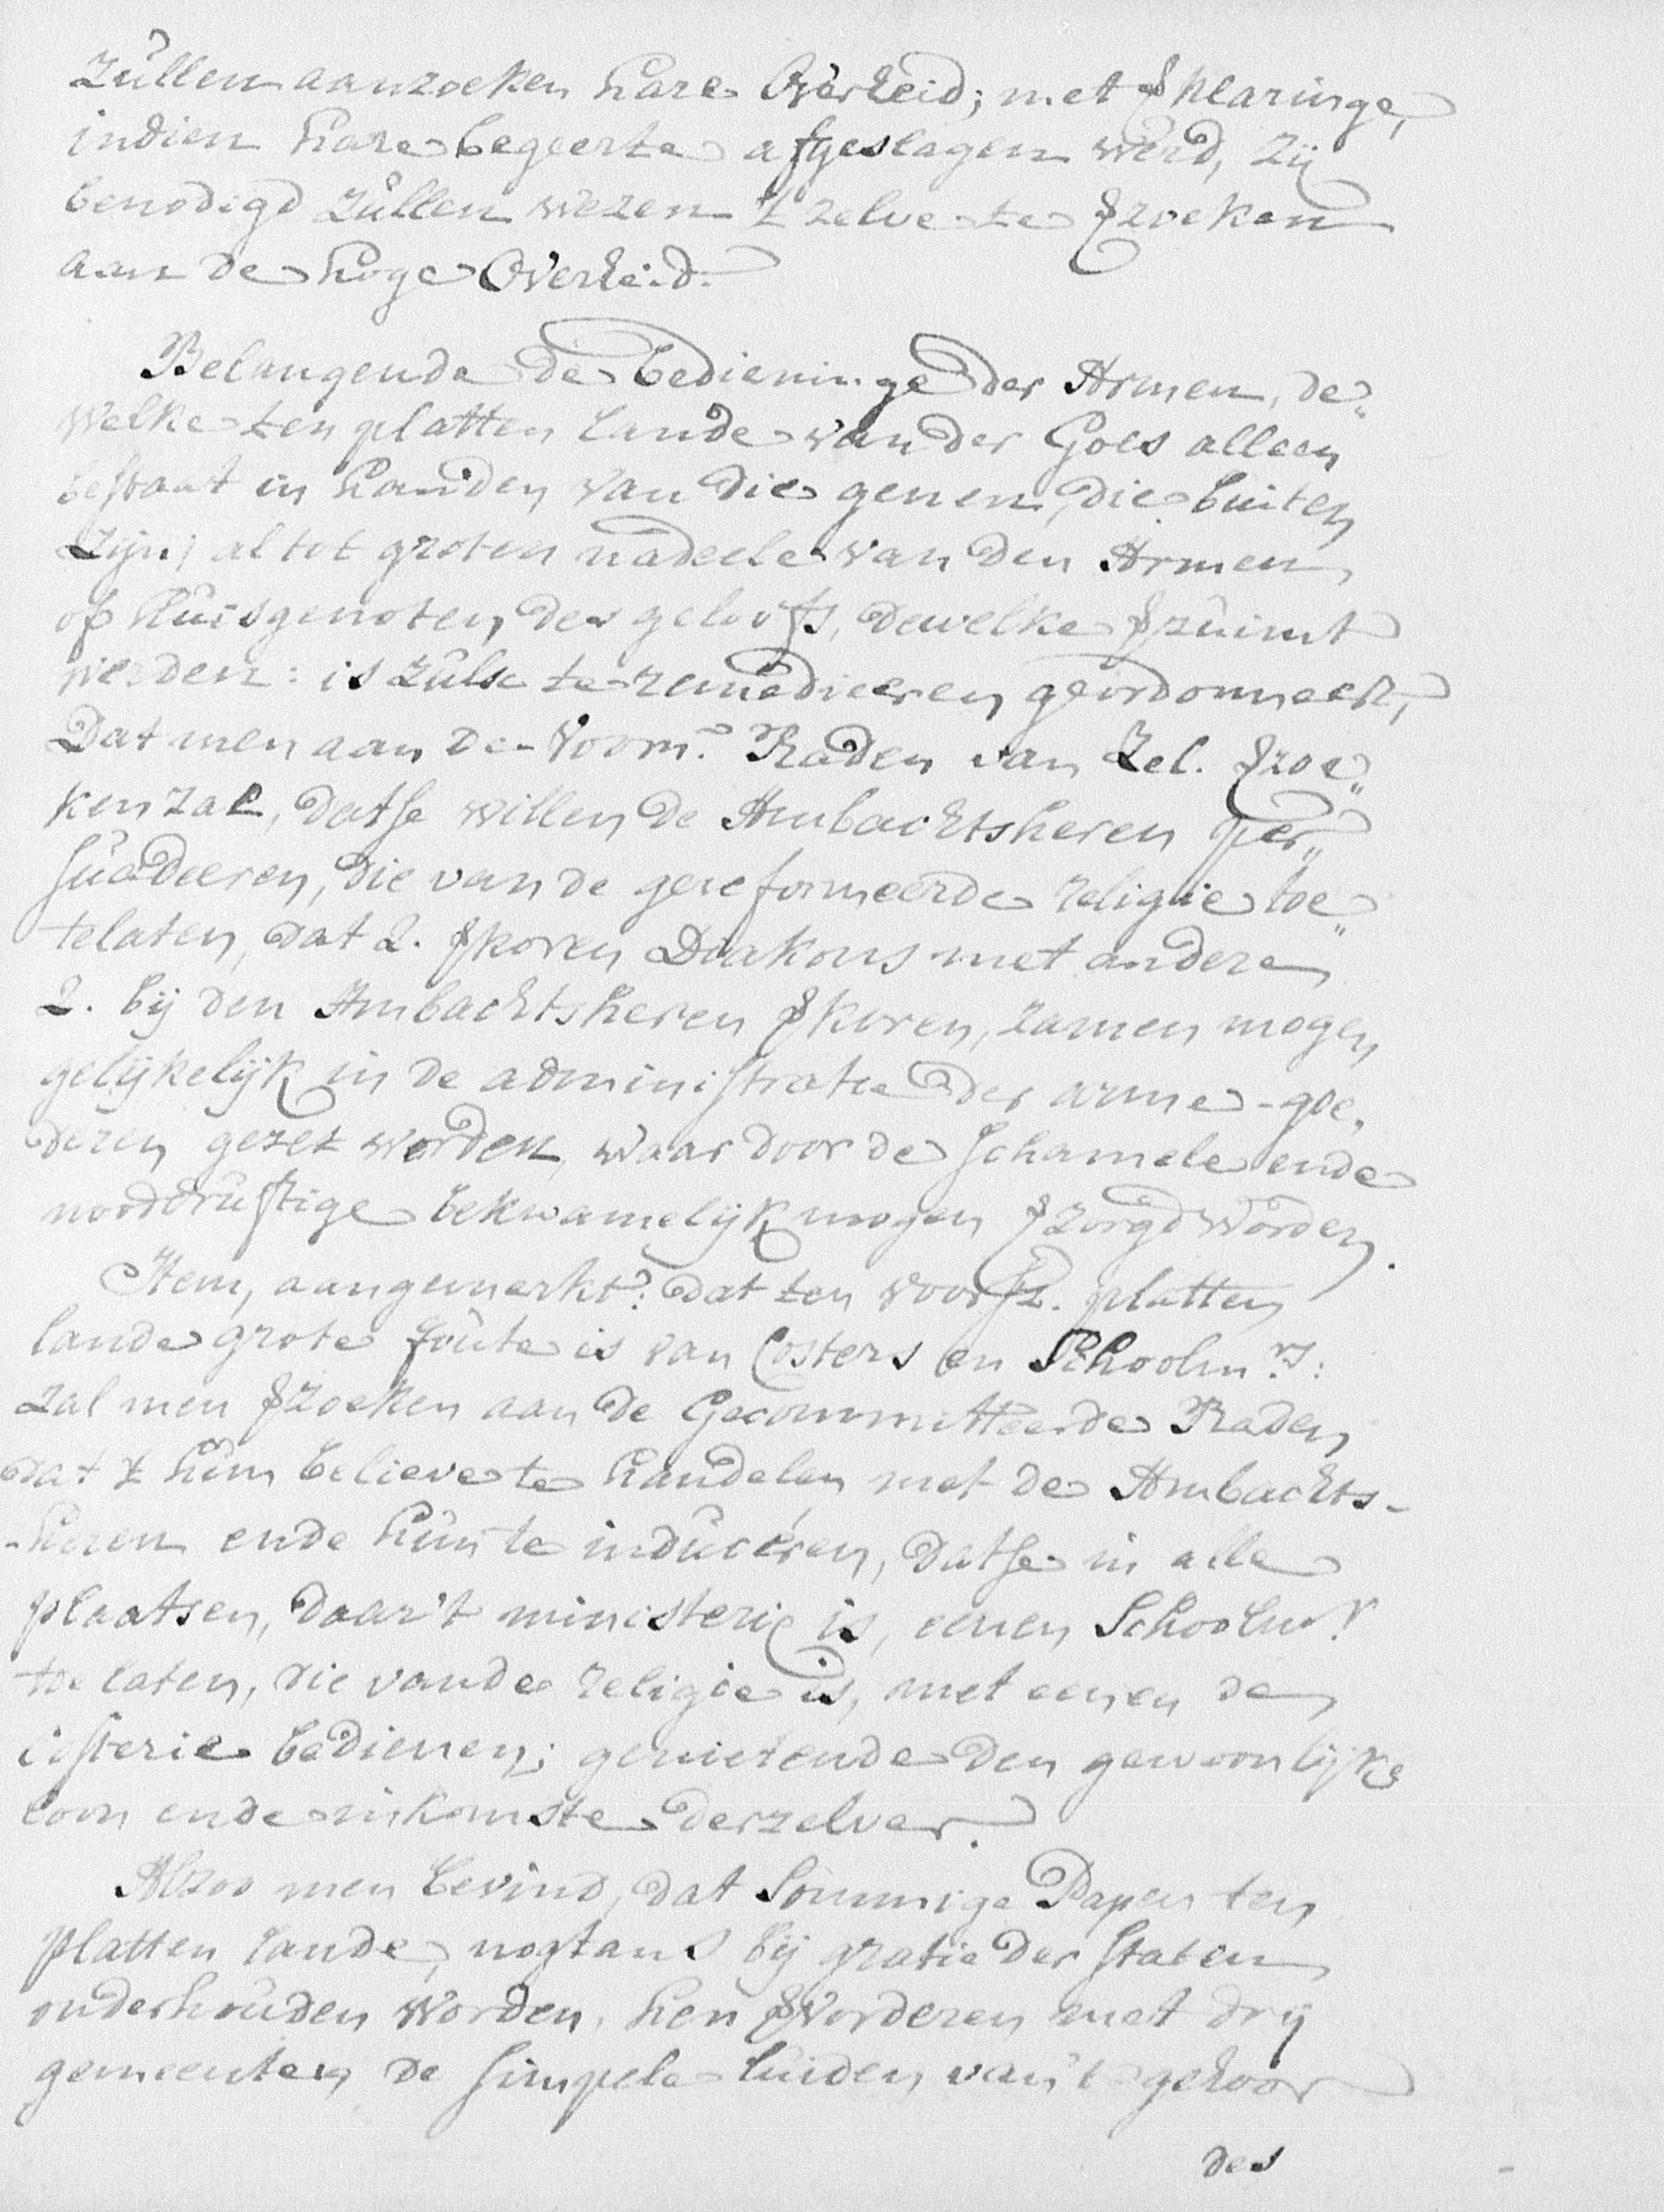 zullen aanzoeken hare Overheid; met ƒklaringe,
indien hare begeerte afgeslagen werd, zij
benodigd zullen wezen 't zelve te ƒzoeken
aan de hoge Overheid.
Belangende de bedieninge der Armen, de„
welke ten platten lande van der Goes alleen
bestaat in handen van die genen, die buiten
zijn; al tot groten nadeele van den Armen
of huisgenoten des geloofs, dewelke ƒzuimt
werden: is zulx te remedieeren geordonneert,
Dat men aan de voorn. Raden van Zel. ƒzoe„
ken zal, datse willen de Ambachtsheren per„
suadeeren, die van de gereformeerde religie toe„
telaten, dat 2. ƒkoren Diakons met andere
2. bij den Ambachtsheren ƒkoren, zamen mogen
gelijkelijk in de administratie der arme-goe„
deren gezet worden, waar door de schamele ende
nooddruftige bekwamelijk mogen ƒzorgd worden.
Item, aangemerkt: dat ten voorsz. platten
lande grote foute is van Costers en Schoolmrs:
zal men ƒzoeken aan de Gecommitteerde Raden
dat 't hun believe te handelen met de Ambachts-
-heren ende hun te induceren, datse in alle
plaatsen, daar 't ministerie is, eenen Schoolmr
toelaten, die van de religie is, met eenen de
costerie bedienen; genietende den gewoonlijke
loon ende inkomste derzelver.
Alzoo men bevind, dat Sommige Papen ten
platten lande, nogtans bij gratie der Staten
onderhouden worden, hen ƒvorderen met drij
gemeenten de simpele luiden van 't gehoor
des